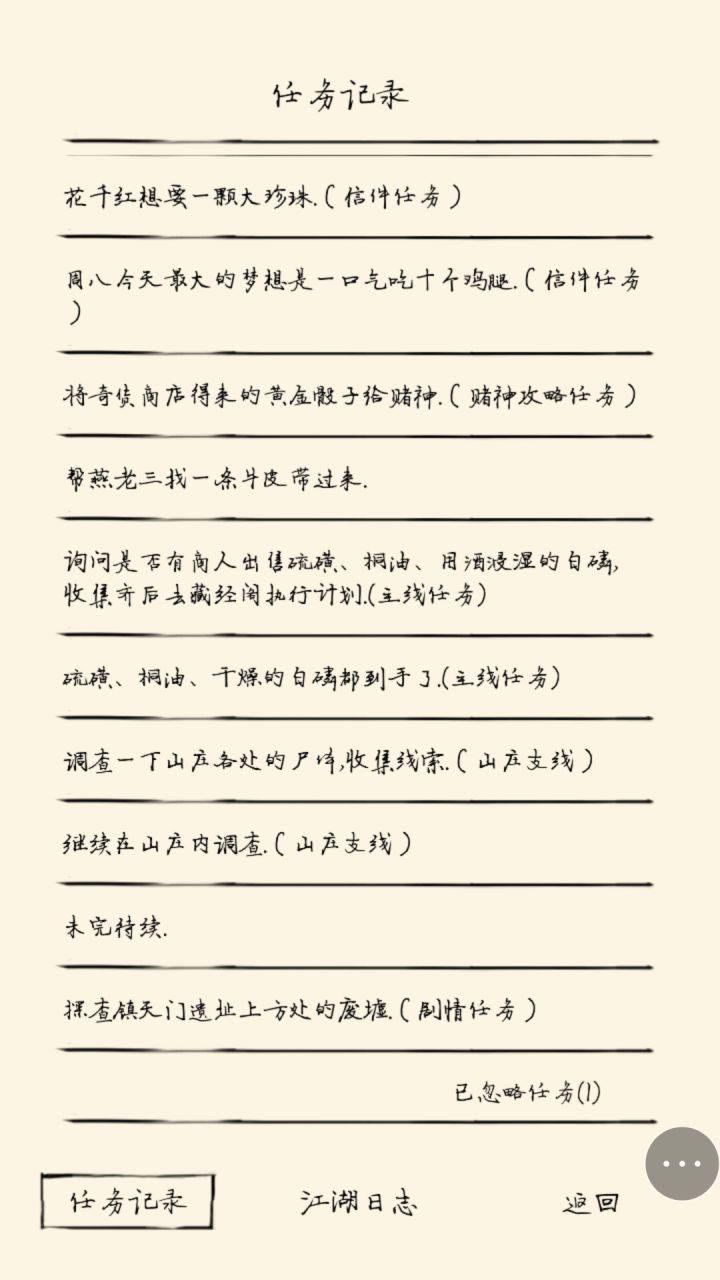 任务记录
花千红想要一颗大珍珠.(信件任务)
周八今天最大的梦想是一口气吃十个鸡腿.(信件任务
)
将奇货商店得来的黄金骰子给赌神.(赌神攻略任务)
帮燕老三找一条牛皮带过来.
询问是否有商人出售硫磺、桐油、用酒浸湿的白磷,
收集齐后去藏经阁执行计划.(主线任务)
硫磺、桐油、干燥的白磷都到手了.(主线任务)
调查一下山庄各处的尸体,收集线索.(山庄支线)
继续在山庄内调查.(山庄支线)
未完待续.
探查镇天门遗址上方处的废墟.(剧情任务)
已忽略任务(1)
任务记录 江湖日志 返回